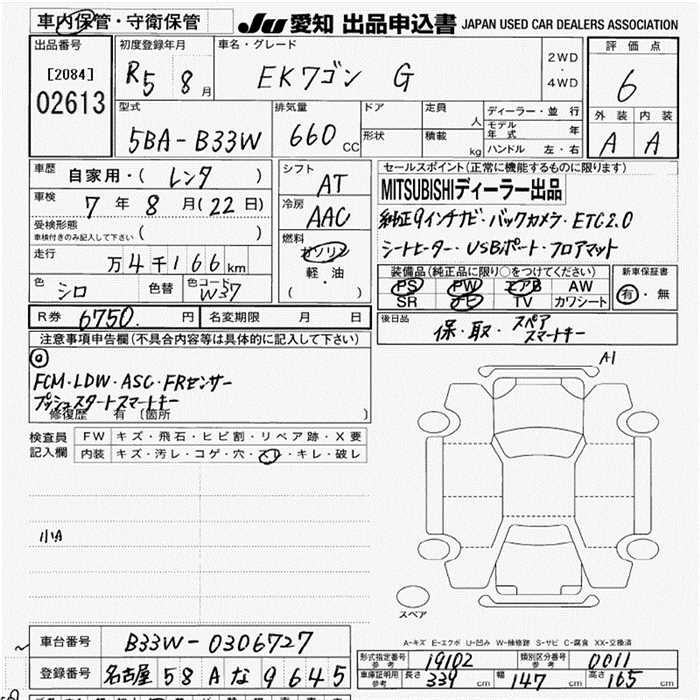 車内保管・守衛保管
JU 愛知 出品申込書 JAPAN USED CAR DEALERS ASSOCIATION
出品番号
[2084]
02613
初度登録年月
R5 8月
車名・グレード
EKワゴン G
2WD
・
4WD
評価点
6
外装 内装
A A
型式
5BA-B33W
排気量
660 CC
ドア
形状
定員 人
積載 kg
ディーラー・並行
モデル年式 年
ハンドル 左・右
車歴
自家用・( レンタ )
車検
7年 8月(22日)
受検形態
車検付きのみ記入して下さい ( )
走行
万4千166km
色 シロ
色替
色コード W37
シフト
AT
冷房
AAC
燃料
ガソリン
軽・油
( )
セールスポイント(正常に機能するものに限ります)
MITSUBISHIディーラー出品
純正9インチナビ・バックカメラ・ETC2.0
シートヒーター・USBポート・フロアマット
装備品(純正品に限り○をつけてください)
PS PW エアB AW
SR ナビ TV カワシート
新車保証書
有・無
R券 6750. 円
名変期限 月 日
後日品
保・取・スペアスマートキー
注意事項申告欄(不具合内容等は具体的に記入して下さい)
FCM・LDW・ASC・FRセンサー
プッシュスタートスマートキー
修復歴 有 〔箇所 〕
検査員
記入欄
FW キズ・飛石・ヒビ割・リペア跡・X要
内装 キズ・汚レ・コゲ・穴・スレ・キレ・破レ
小A
A1
スペア
A-キズ E-エクボ U-凹み W-補修跡 S-サビ C-腐食 XX-交換済
車台番号
B33W-0306727
登録番号
名古屋 58A な 9645
形式指定番号
参考
19102
類別区分番号
参考
0011
車庫証明用
参考
長さ 339 cm
幅 147 cm
高さ 165 cm